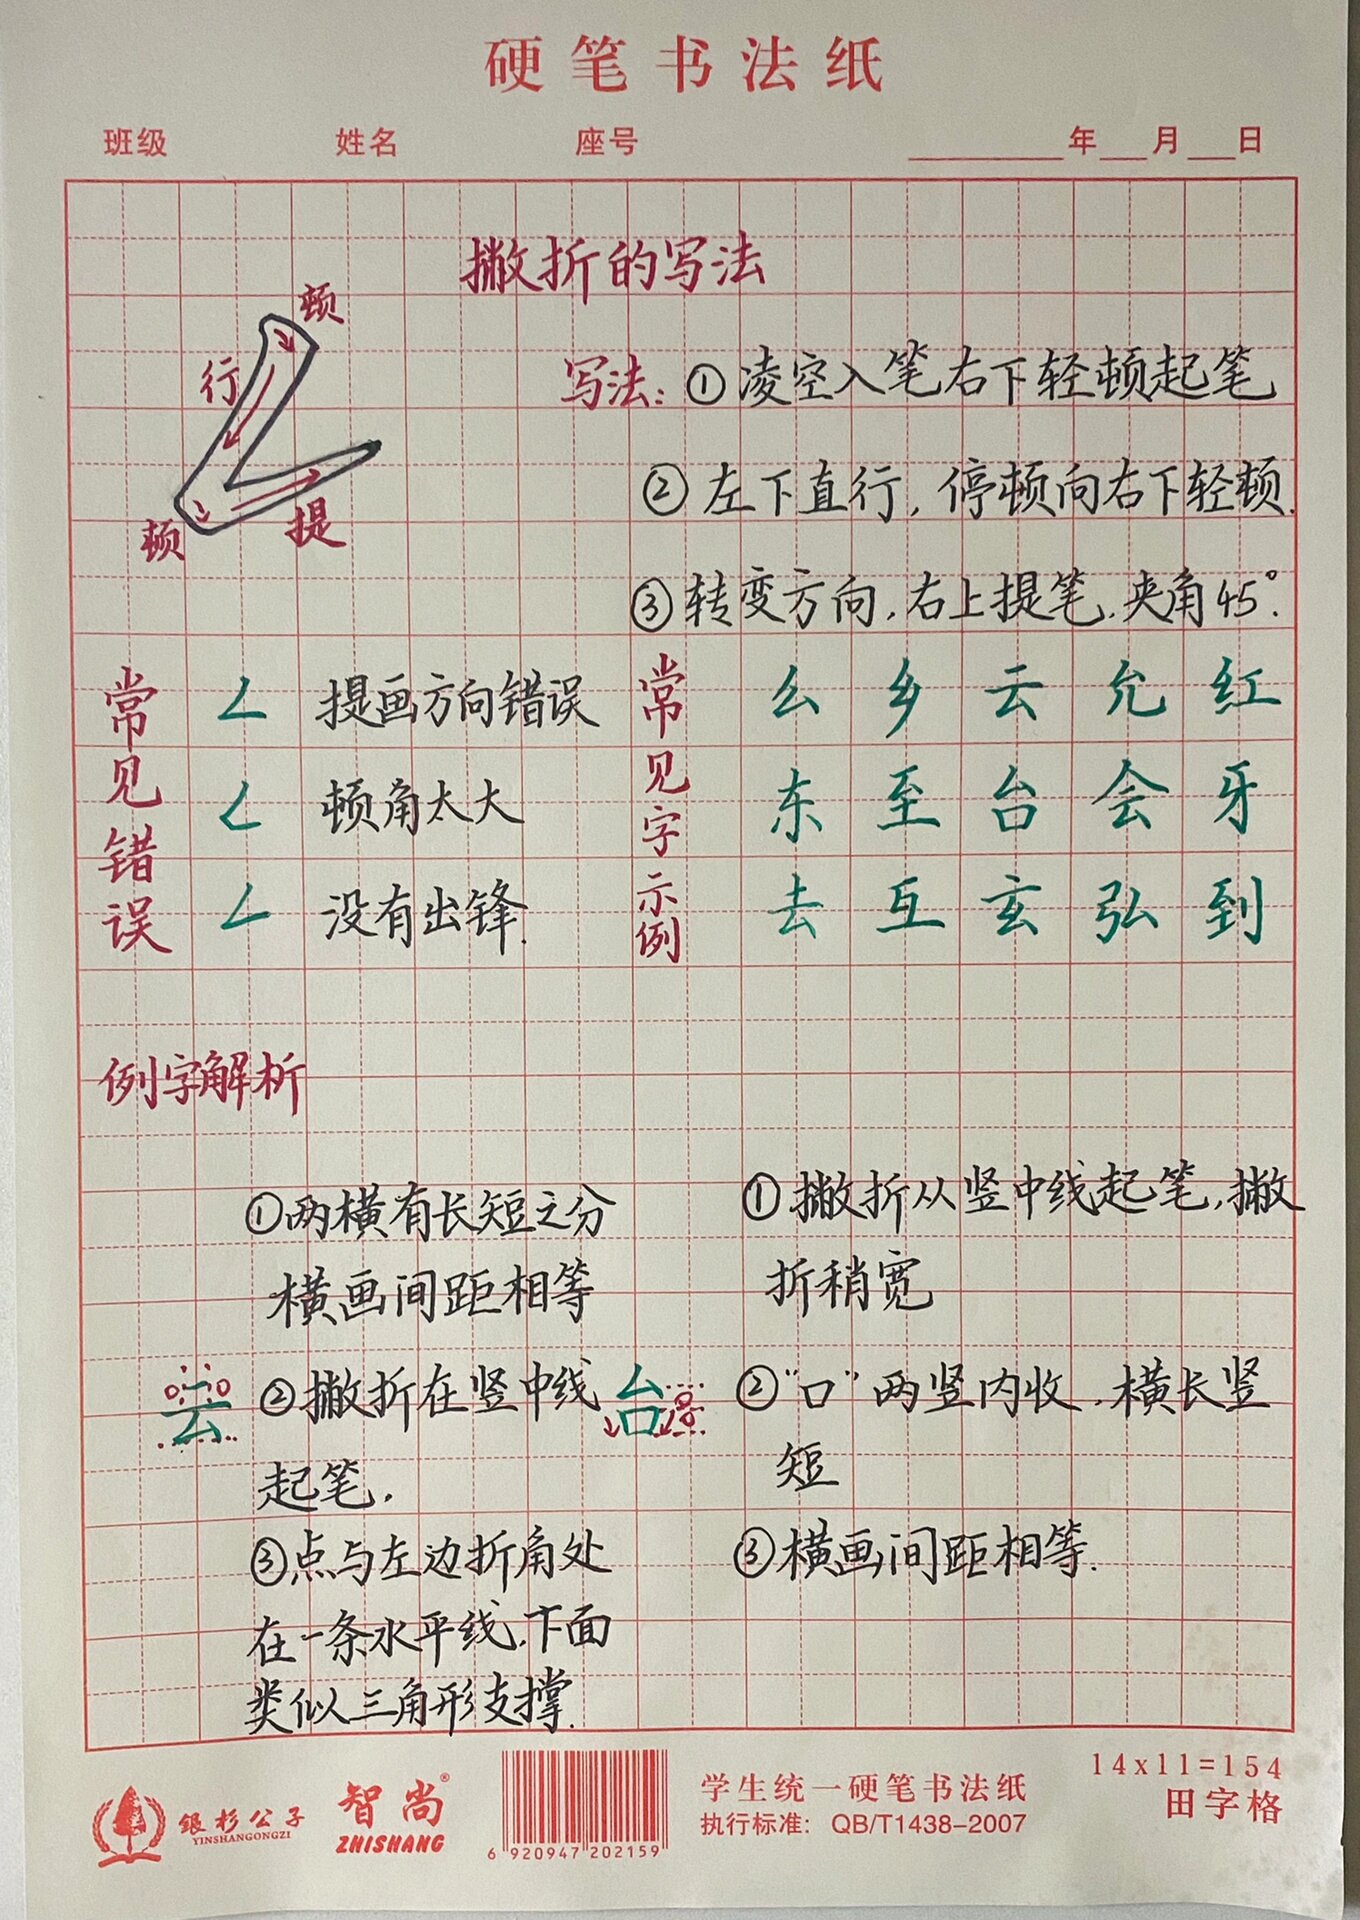 硬笔书法纸
班级 姓名 座号 年 月 日
撇折的写法
顿
行
顿
提
写法：①凌空入笔右下轻顿起笔
②左下直行，停顿向右下轻顿.
③转变方向，右上提笔，夹角45°.
常见错误
提画方向错误
顿角太大
没有出锋.
常见字示例
幺 乡 云 允 红
东 至 台 会 牙
去 互 玄 弘 到
例字解析
云
①两横有长短之分
横画间距相等
②撇折在竖中线
起笔.
③点与左边折角处
在一条水平线，下面
类似三角形支撑.
台
①撇折从竖中线起笔，撇
折稍宽
②“口”两竖内收，横长竖
短
③横画间距相等.
银杉公子
YINSHANGONGZI
智尚®
ZHISHANG
6 920947 202159
学生统一硬笔书法纸
执行标准：QB/T1438-2007
14x11=154
田字格